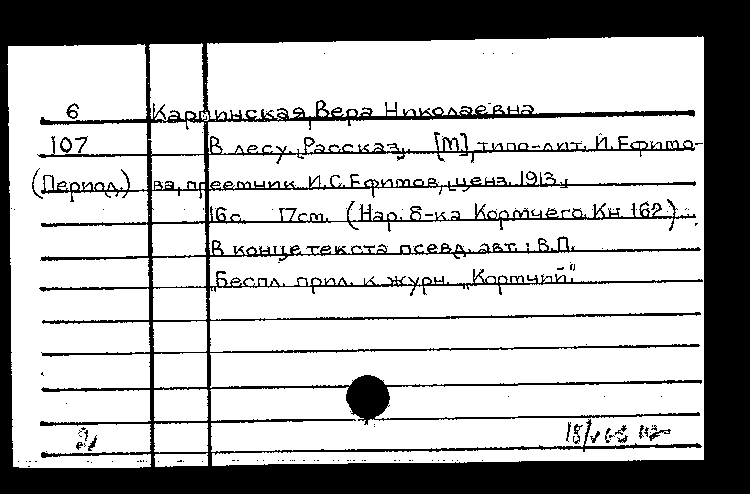 6 Карпинская, Вера Николаевна
107 В лесу. Рассказ. [М], типо-лит. И. Ефимо-
(Период.) ва, преемник И.С. Ефимов, ценз. 1913.
16с. 17см. (Нар. б-ка Кормчего. Кн. 162).
В конце текста псевд. авт.: В.П.
"Беспл. прил. к журн. „Кормчий".